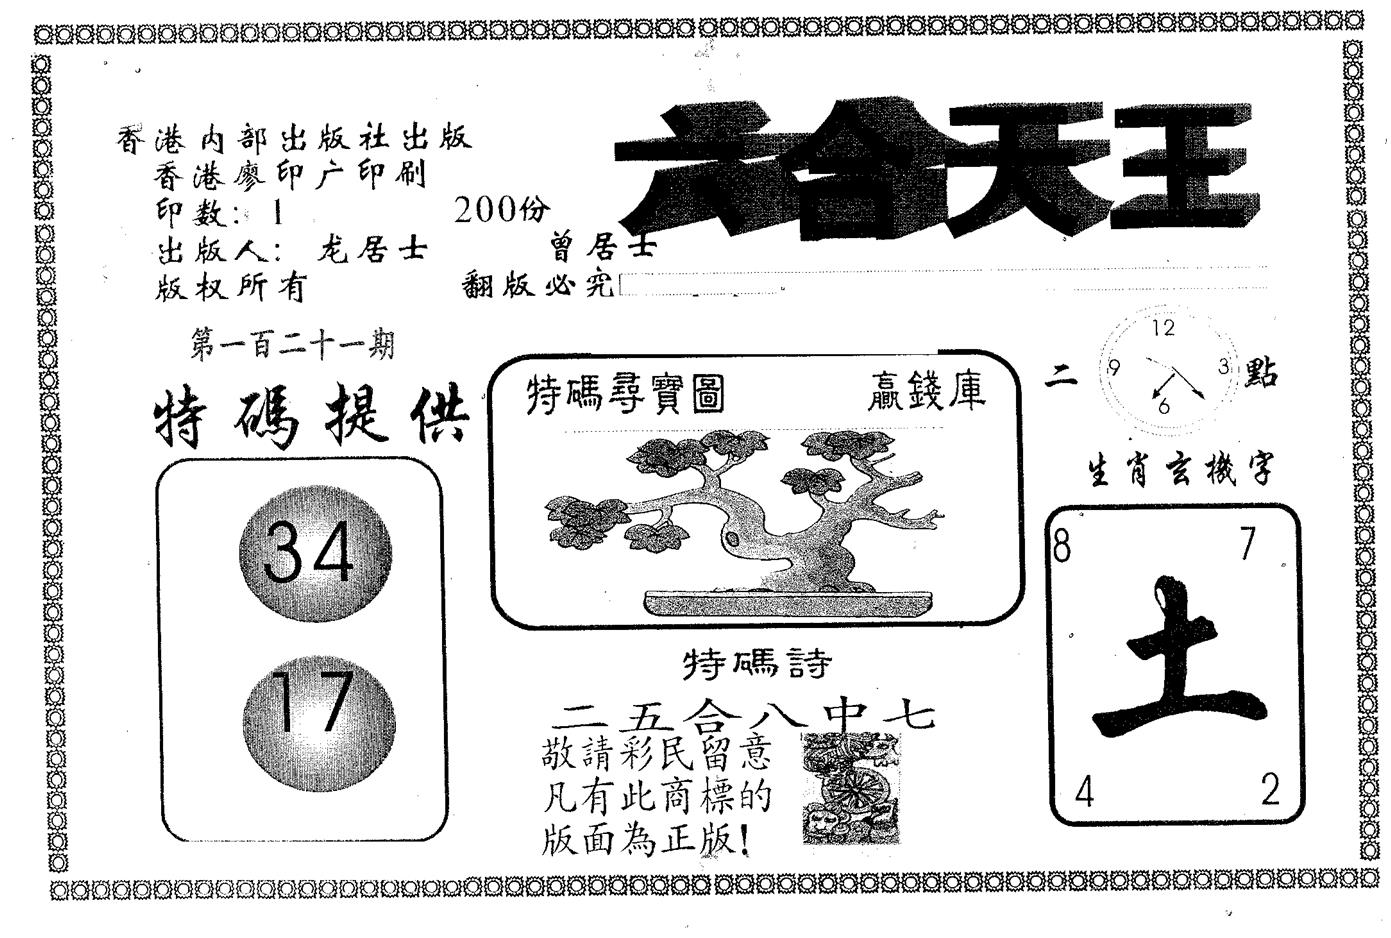 六合天王
香港内部出版社出版
香港廖印广印刷
印数：1 200份
出版人：龙居士 曾居士
版权所有 翻版必究
第一百二十一期
特碼提供
34
17
特碼尋寶圖 贏錢庫
特碼詩
二五合八中七
敬請彩民留意
凡有此商標的
版面為正版！
二 點
12
9 3
6
生肖玄機字
8 7
土
4 2